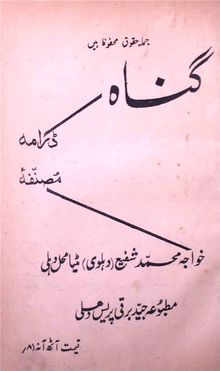 جملہ حقوق محفوظ ہیں
گناہ
ڈرامہ
مصنفہٴ
خواجہ محمد شفیع (دہلوی) مٹیا محل دہلی
مطبوعہ جید برقی پریس دہلی
قیمت آٹھ آنہ (۸/)